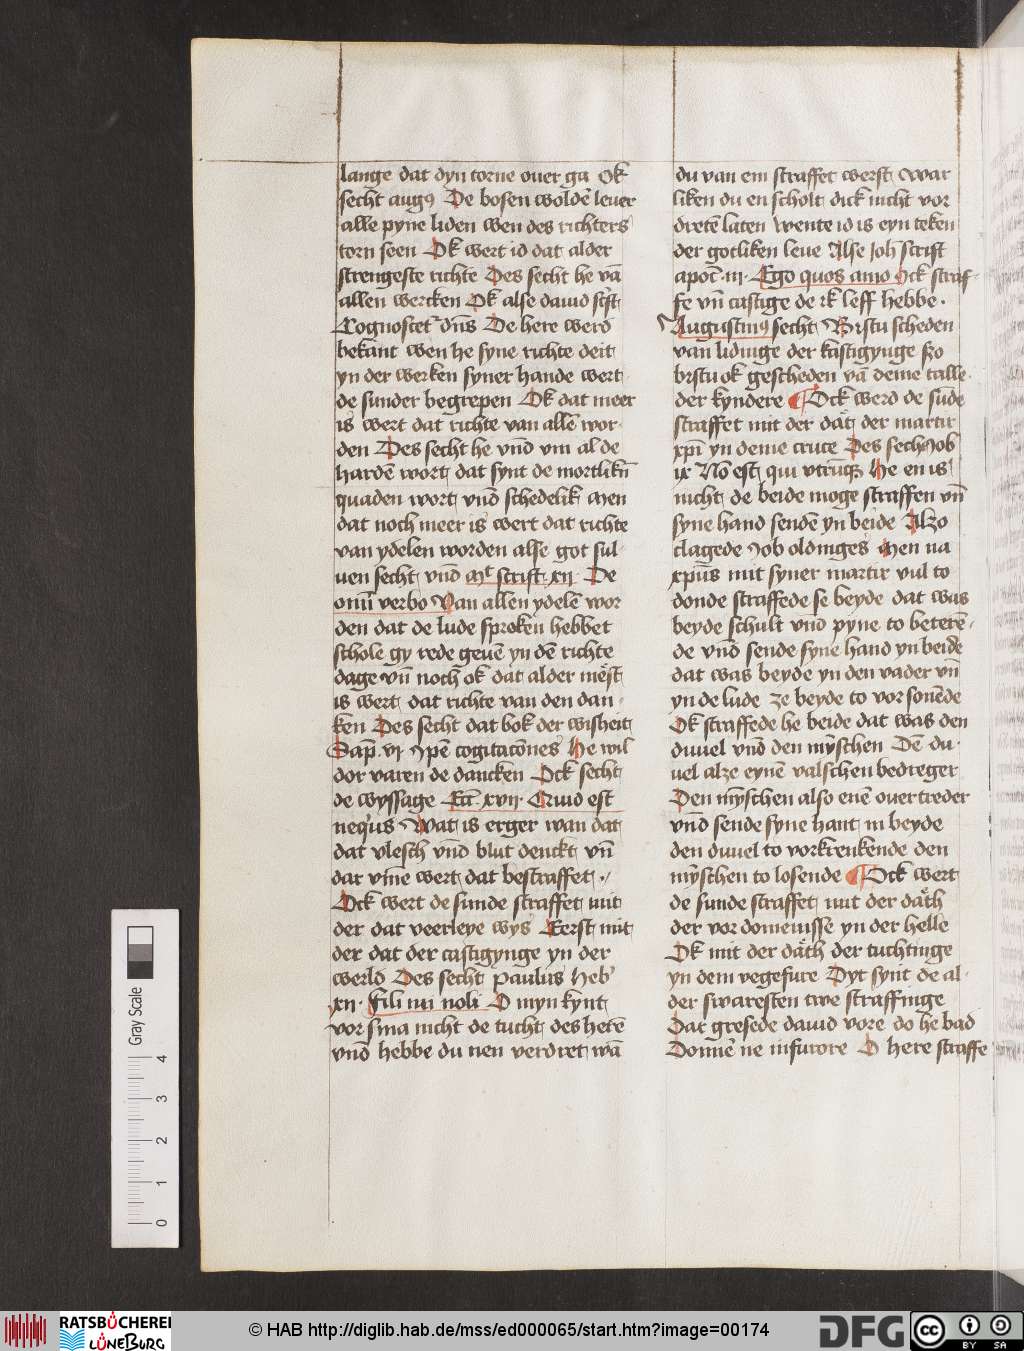 lange dat dyn torne ouer ga Ok
secht aug9 De bosen woldē leuer
alle pyne liden wen des richters
torn seen Ok wert id dat alder
strengeste richte Des secht he vā
allen wercken Ok alse dauid sp̄st
Cognoscet dn̄s De here werd
bekant wen he syne richte deit
yn der werken syner hande wert
de sunder begrepen Ok dat meer
is wert dat richte van allē wor
den Des secht he vnd vm al de
hardē wort dat synt de mortlikn̄
quaden wort vnd schedelik men
dat noch meer is wert dat richte
van ydelen worden alse got sul
uen secht vnd mt scrift xii De
omī verbo Van allen ydelē wor
den dat de lude sproken hebbet
schole gy rede geuē yn dē richte
dage vn̄ noch ok dat alder mēst
is wert dat richte van den dan
ken Des secht dat bok der wisheit
Sap̄ vi Ipē cogitacōnes He wil
dor varen de dancken Ock secht
de wyssage Ecc̄ xvii Quid est
neq'us Wat is erger wan dat
dat vlesch vnd blut denckt vn̄
dat vme wert dat bestraffet
Ock wert de sunde straffet mit
der dat veerleye wys Eerst mit
der dat der castigynge yn der
werld Des secht paulus Heb'
xii Fili mi noli O myn kynt
vor sma nicht de tucht des herē
vnd hebbe du nen verdret wā
du van em straffet werst War
liken du en scholt dick nicht vor
dretē laten wente id is eyn teken
der gotliken leue Alse Joh scrift
apoc̄ iii Ego quos amo Ick straf
fe vn̄ castige de ik leff hebbe
Augustin9 secht Bistu scheden
van lidinge der kastigynge szo
bistu ok gescheden vā deme talle
der kyndere Ock werd de sūde
straffet mit der dāt der martir
xpī yn deme cruce Des sech Job
ix Nō est qui vtrūq3 He en is
nicht de beide moge straffen vn̄
syne hand sendē yn beide Alzo
clagede Job oldinges Men na
xpūs mit syner martir vul to
donde straffede se beyde dat was
beyde schult vnd pyne to beterē
de vnd sende syne hand yn beide
dat was beyde yn den vader vn̄
yn de lude ze beyde to vorsonēde
Ok straffede he beide dat was den
duuel vnd den mȳschen Dē du
uel alze eynē valschen bedreger
Den mȳschen also enē ouertreder
vnd sende syne hant in beyde
den duuel to vorkrenkende den
mȳschen to losende Ock wert
de sunde straffet mit der dāth
der vordomenisse yn der helle
Ok mit der dāth der tuchtinge
yn dem vegefure Dyt synt de al
der swaresten twe straffinge
Dat gresede dauid vore do he bad
Domīe ne in furore O here straffe
Gray Scale
4
3
2
1
0
RATSBÜCHEREI
LÜNEBURG
© HAB http://diglib.hab.de/mss/ed000065/start.htm?image=00174
DFG
cc
BY SA